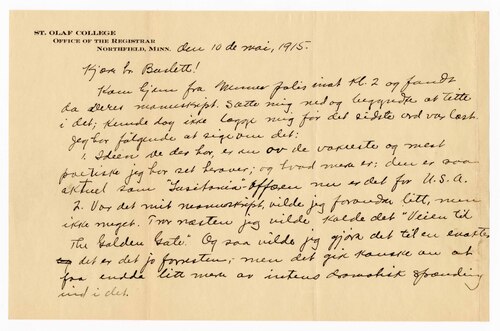 ST. OLAF COLLEGE
OFFICE OF THE REGISTRAR
NORTHFIELD, MINN.
den 10 de mai, 1915.
Kjære br Baslett!
Kom hjem fra Minneapolis inat Kl. 2 og fandt
da deres manuskript. Satte mig ned og begyndte at titte
i det; kunde ikke lægge mig før det sidste ord var læst.
Jeg har følgende at si om det:
1. Ideen De der har, er en av de vakreste og mest
poetiske jeg har set herover; og hvad mere er: den er saa
aktuel som "Lusitania" affæren nu er det for U.S.A.
2. Var det mit manuskript, vilde jeg forandre litt, men
ikke meget. Tror næsten jeg vilde kalde det "Veien til
The Golden Gate". Og saa vilde jeg gjøre det til en enakter
det er det jo forresten; men det gik kanske an at
faa endda litt mere av intens dramatisk spænding
ind i det.